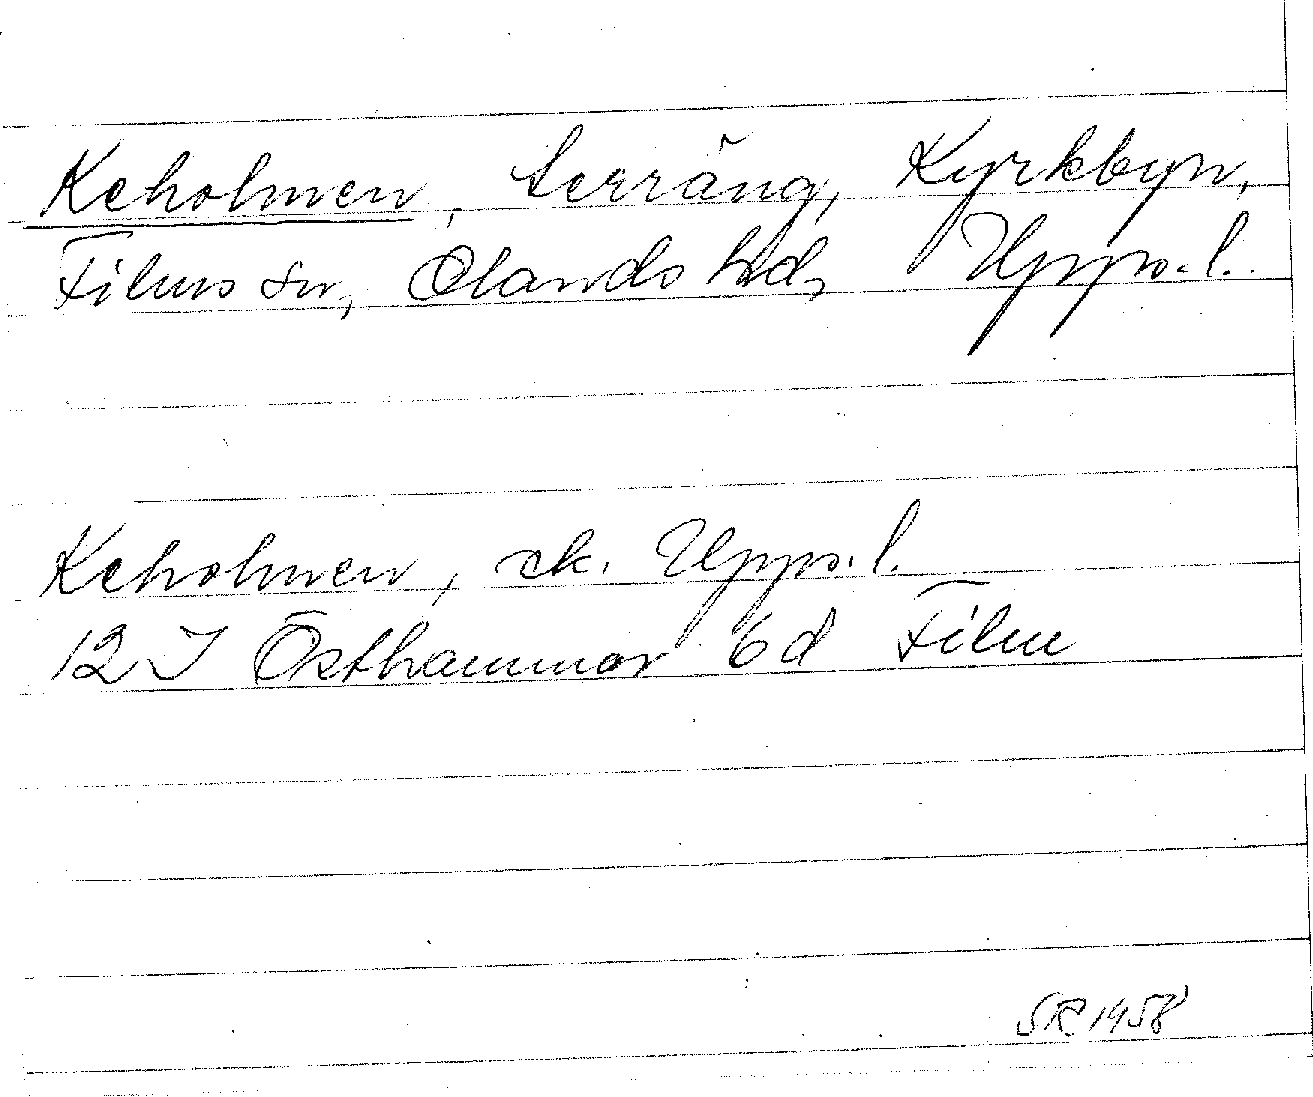 Keholmen, terräng, Kyrkbyn,
Films sn, Olands hd, Upps.l.
Keholmen, ek. Upps.l.
12 I Östhammar 6d Film
SR 1958